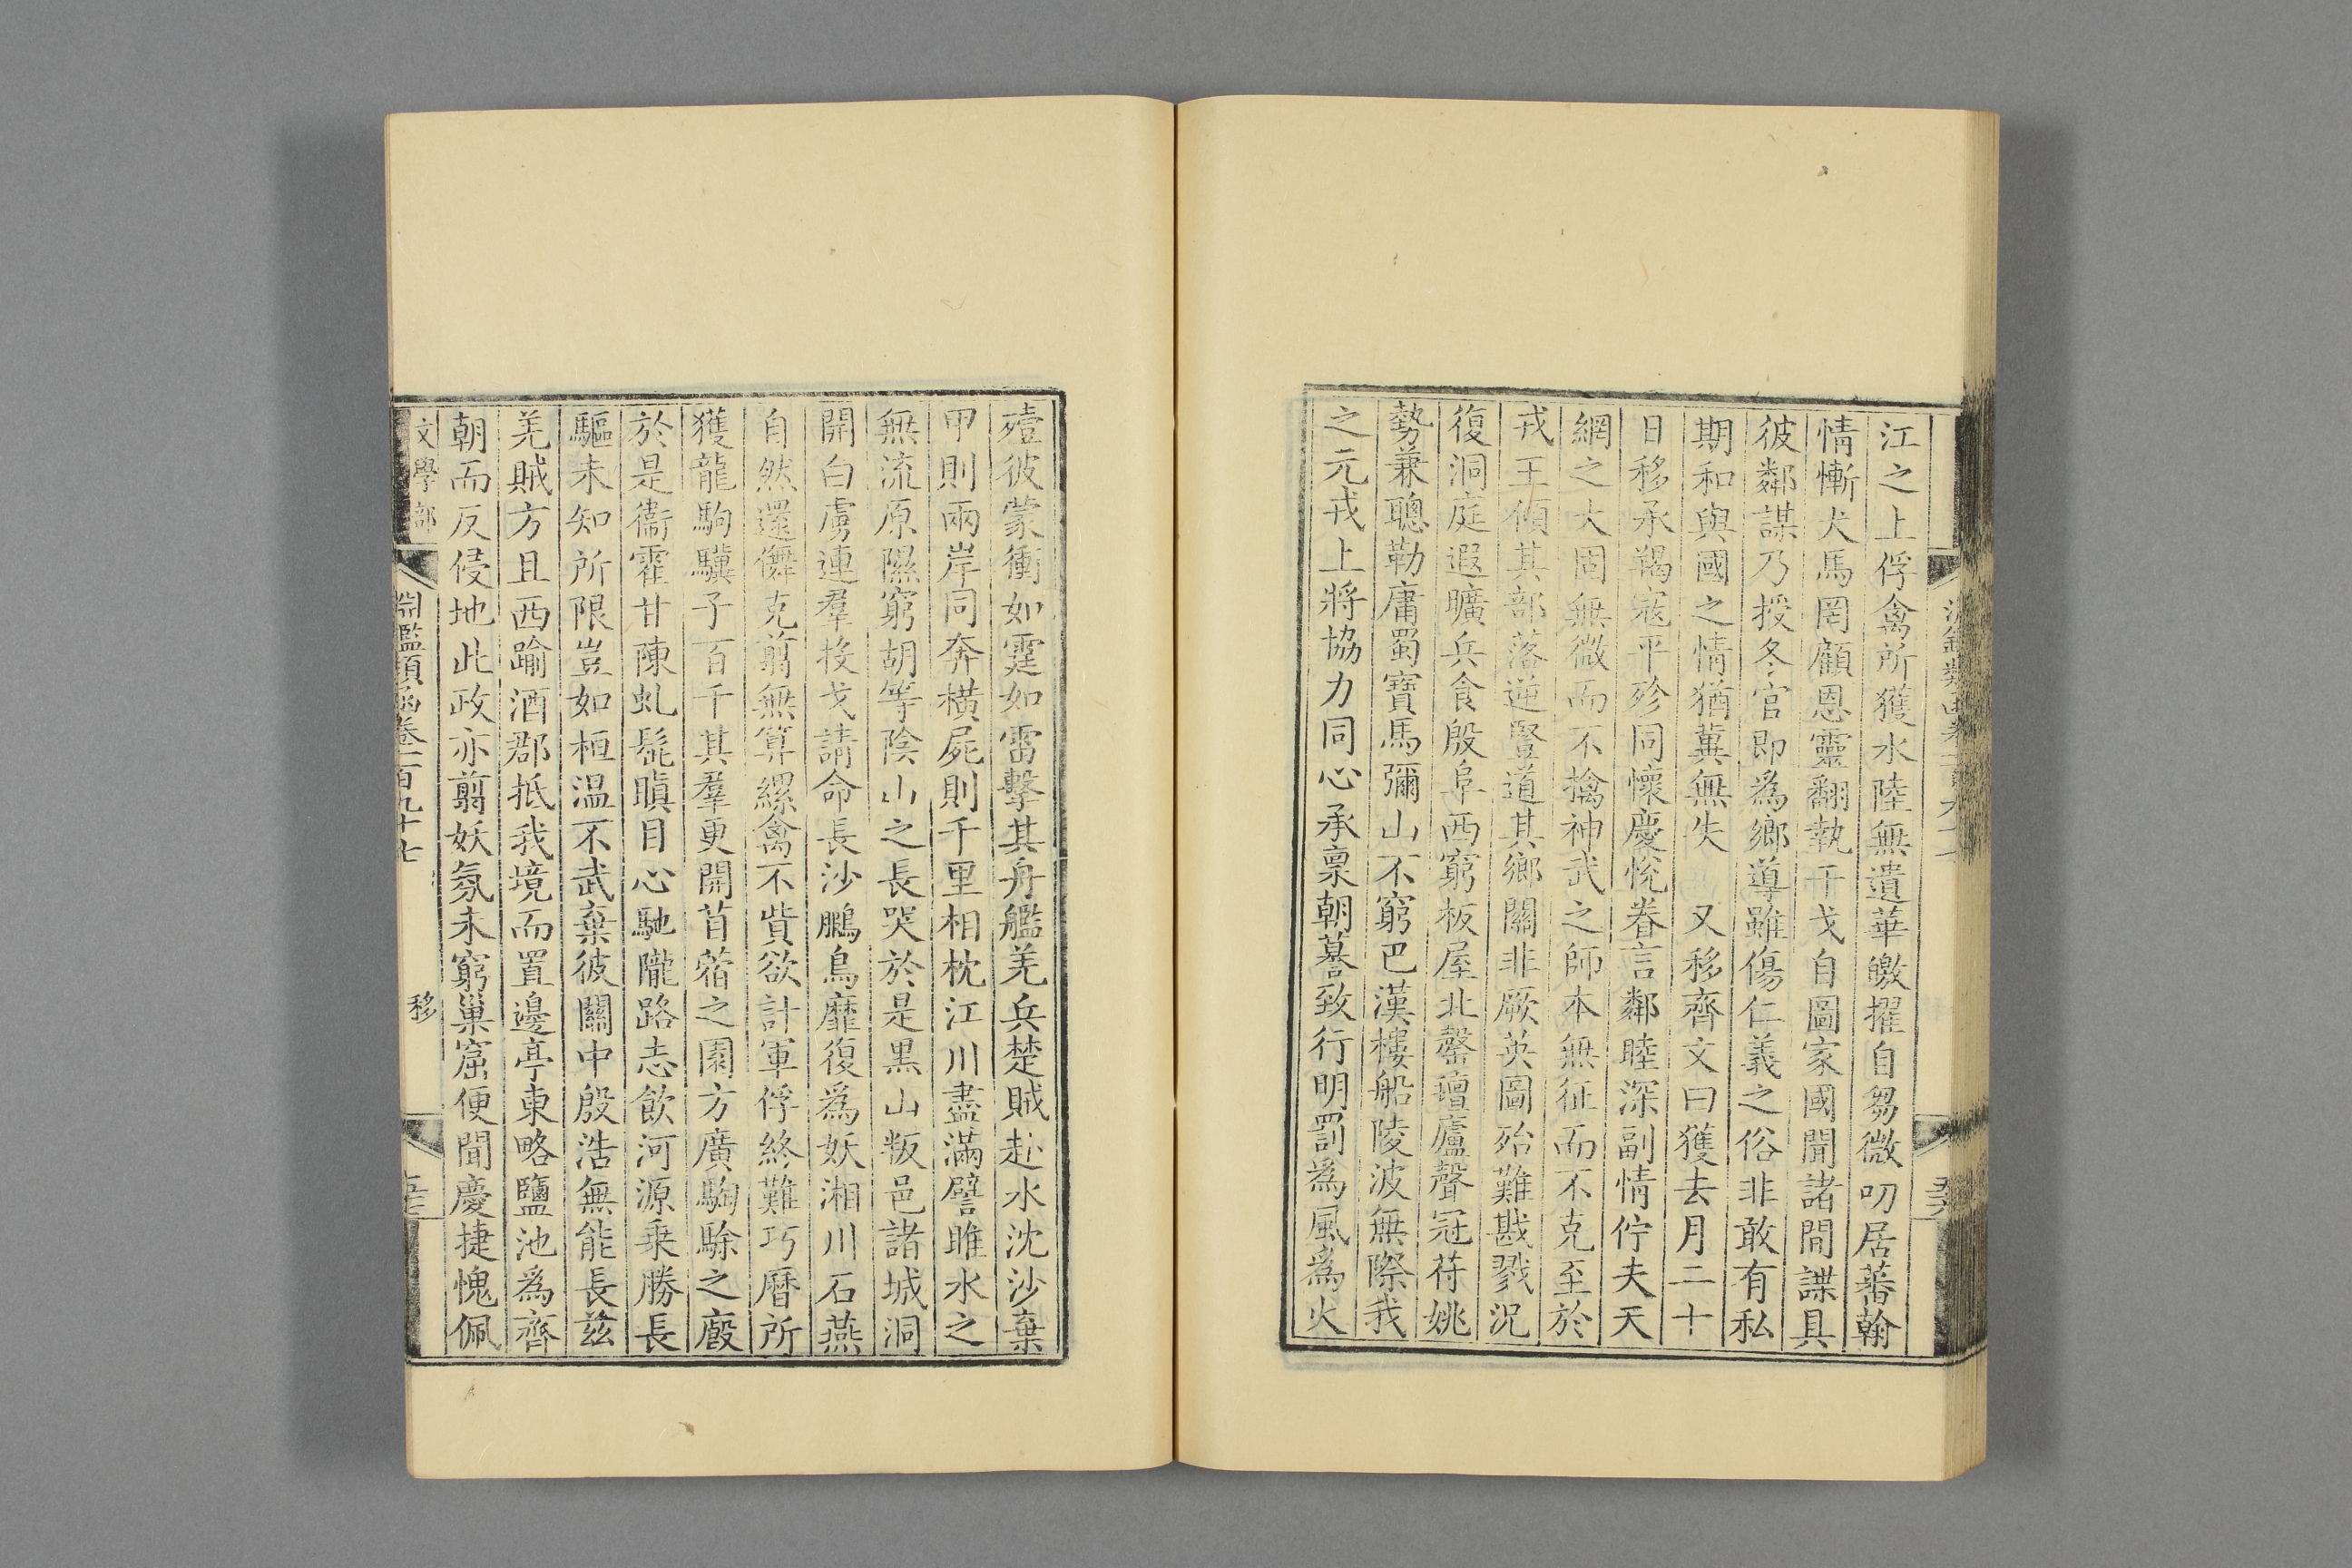 江之上俘禽所獲水陸無遺華皦擢自芻微叨居蕃翰
情慚犬馬罔顧恩靈翻執干戈自圖家國聞諸間諜具
彼鄰謀乃授冬官即爲鄉導雖傷仁義之俗非敢有私
期和與國之情猶冀無失　又移齊文曰獲去月二十
日移承羯寇平殄同懷慶悅眷言鄰睦深副情佇夫天
網之大固無微而不擒神武之師本無征而不克至於
戎王傾其部落逆豎道其鄉關非厥英圖殆難戡戮況
復洞庭遐曠兵食殷阜西窮板屋北罄氊廬聲冠苻姚
勢兼聰勒庸蜀寶馬彌山不窮巴漢樓船陵波無際我
之元戎上將協力同心承稟朝謩致行明罰爲風爲火
殪彼蒙衝如霆如雷擊其舟艦羌兵楚賊赴水沈沙棄
甲則兩岸同奔橫屍則千里相枕江川盡滿譬雎水之
無流原隰窮胡等陰山之長哭於是黑山叛邑諸城洞
開白虜連羣投戈請命長沙鵩鳥靡復爲妖湘川石燕
自然還儛克翦無算縲禽不貲欲計軍俘終難巧曆所
獲龍駒驥子百千其羣更開苜蓿之園方廣騊駼之廄
於是衞霍甘陳虬髭瞋目心馳隴路志飲河源乘勝長
驅未知所限豈如桓温不武棄彼關中殷浩無能長茲
羌賊方且西踰酒郡抵我境而置邊亭東略鹽池爲齊
朝而反侵地此政亦翦妖氛未窮巢窟便聞慶捷愧佩
文學部
淵鑑類函卷一百九十七
移